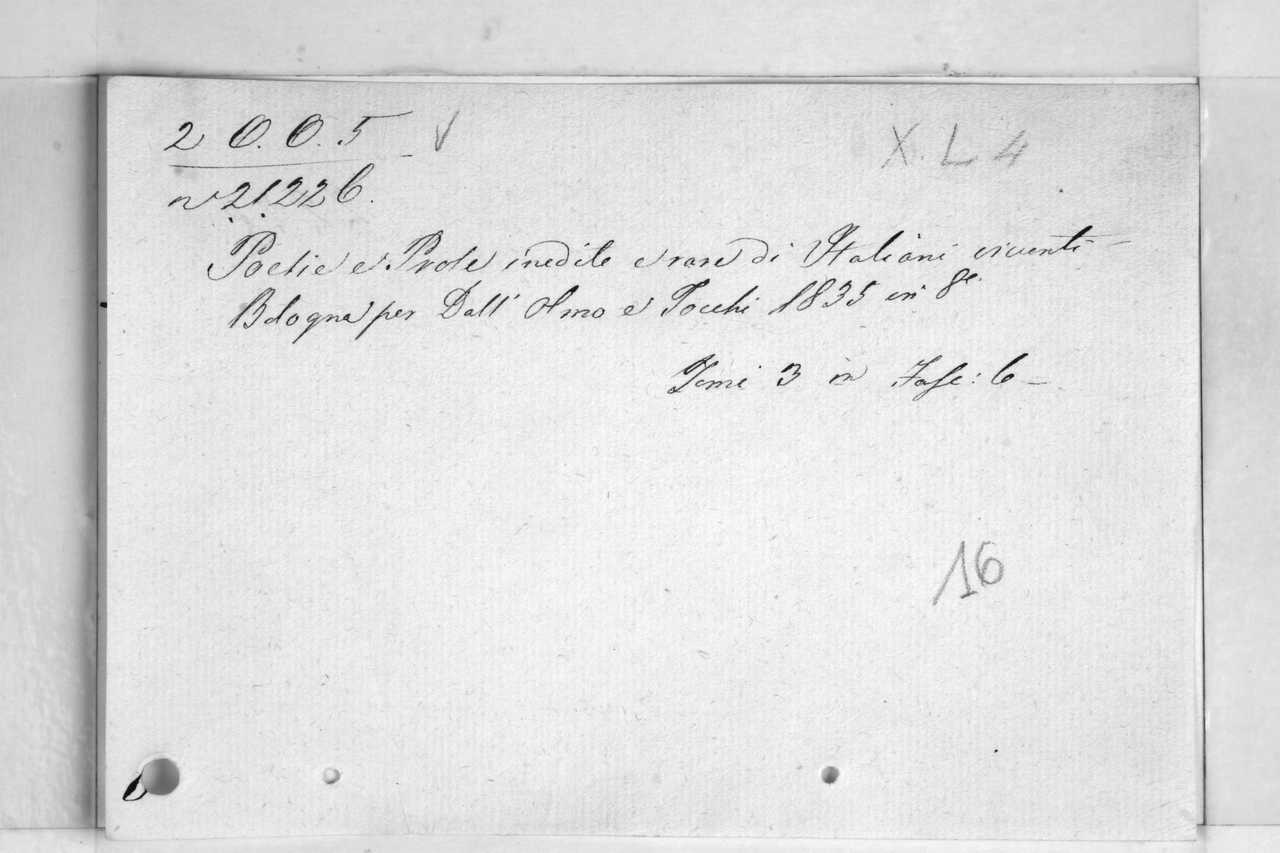 2 O. O. 5 V
X. L 4
nº 21226.
Poesie e Prose inedite e rare di Italiani viventi -
Bologna per Dall' Olmo e Tocchi 1835 in 8º.
Tomi 3 in Fasc: 6 -
16